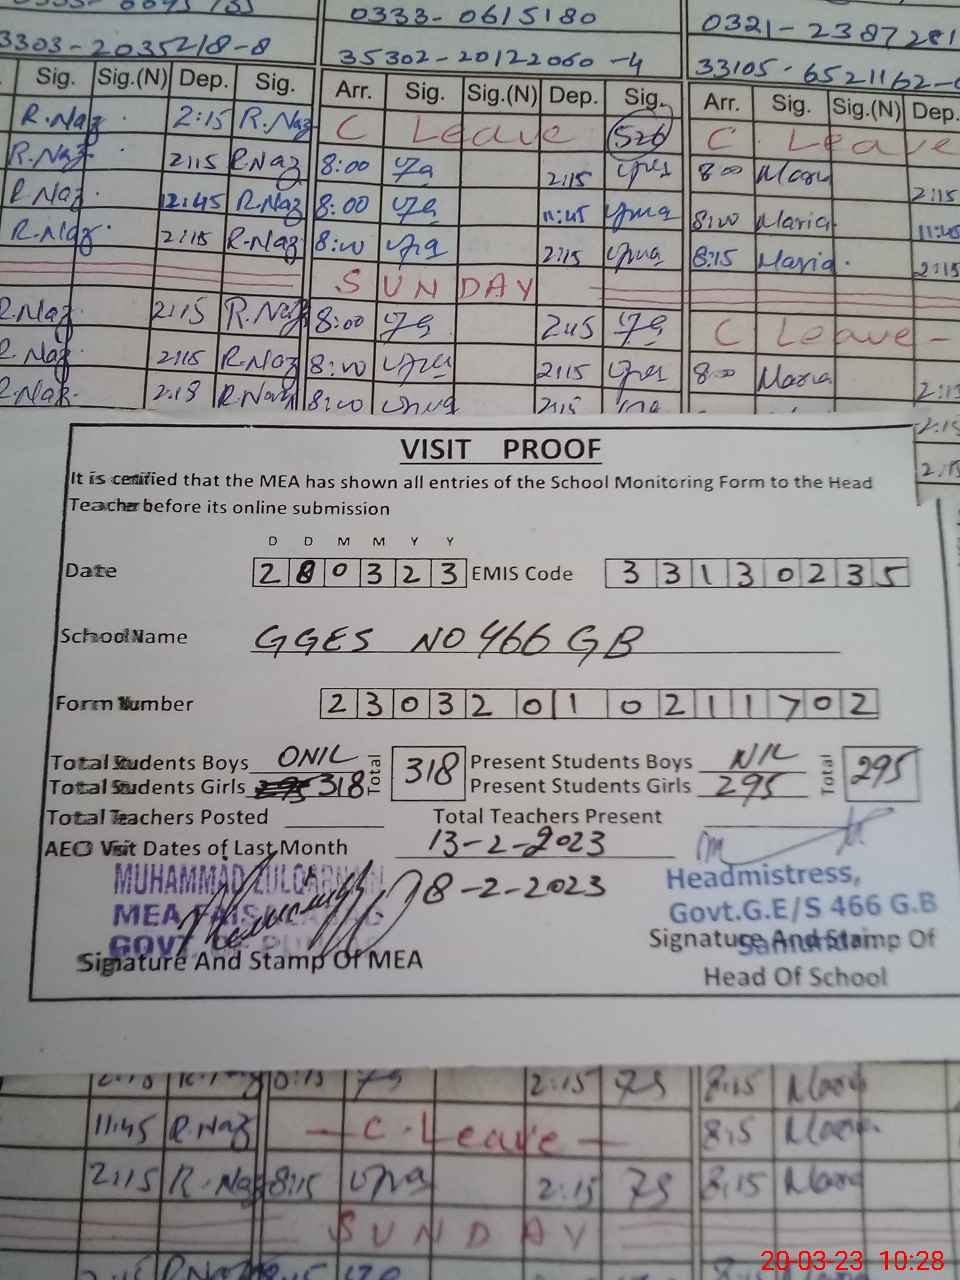 0333-0615180
0321-2387281
3303-2035218-8
35302-20122060-4
33105-6521162-
Sig. Sig.(N) Dep. Sig. Arr. Sig. Sig.(N) Dep. Sig. Arr. Sig. Sig.(N) Dep.
R.Naz 2:15 R.Naz C Leave 526 C Leave
R.Naz 2:15 R.Naz 8:00 2:15 8:00 Maria 2:15
R.Naz 12:45 R.Naz 8:00 11:45 8:00 Maria 11:45
R.Naz 2:15 R.Naz 8:00 2:15 8:15 Maria 2:15
SUNDAY
R.Naz 2:15 R.Naz 8:00 2:15 C Leave
R.Naz 2:15 R.Naz 8:00 2:15 8:00 Maria
R.Naz 2:18 R.Naz 8:00 2:15
VISIT PROOF
It is certified that the MEA has shown all entries of the School Monitoring Form to the Head
Teacher before its online submission
D D M M Y Y
Date 2 0 0 3 2 3 EMIS Code 3 3 1 3 0 2 3 5
School Name GGES NO 466 GB
Form Number 2 3 0 3 2 0 1 0 2 1 1 7 0 2
Total Students Boys ONIL Total 318 Present Students Boys NIL Total 295
Total Students Girls 318 Present Students Girls 295
Total Teachers Posted Total Teachers Present
AEO Visit Dates of Last Month 13-2-2023
MUHAMMAD ZULQARNAIN 8-2-2023 Headmistress,
MEA FAISALABAD Govt.G.E/S 466 G.B
GOVT. OF PUNJAB Samundri
Signature And Stamp Of MEA Signature And Stamp Of
Head Of School
2:15 8:15 2:15 8:15 Maria
11:45 R.Naz C.Leave 8:15 Maria
2:15 R.Naz 8:15 2:15 8:15 Maria
SUNDAY
20-03-23 10:28